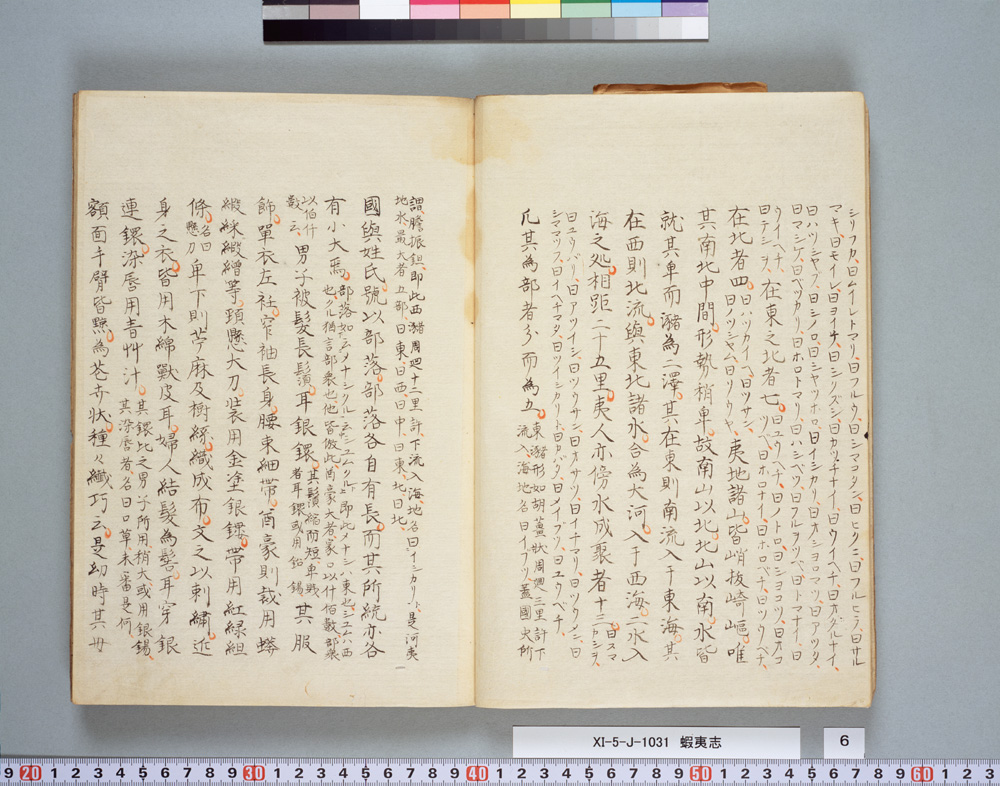 シリフカ、曰ムイレトマリ、曰フルウ、曰シマコタン、曰ヒクニ、曰フルヒラ、曰サル
マキ、曰モイレ、曰ヨイチ、曰シクズシ、曰カツチナイ、曰ウイベチ、曰オタルナイ、
曰ハツシヤブ、曰シノロ、曰シヤツホロ、曰イシカリ、曰オショロマツ、曰アツタ、
曰マシケ、曰ベツカリ、曰ホロトマリ、曰ハシベツ、曰フルヲツペ、曰トマナイ、曰
ウイベチ、曰テシヲ、在東之北者七。曰ユウベチ、曰ノトロ、曰シヨコツ、曰オコツペ、曰ホロナイ、曰ホロベチ、曰ツウベチ、
在北者四。曰ハツカイベ、曰ウツサン、曰ノツシヤム、夷地諸山。皆峭抜崎嶇。唯
其南北中間。形勢稍卑。故南山以北。北山以南。水皆
就其卑而瀦為二澤。其在東則南流入于東海。其
在西則北流。與東北諸水。合為大河。入于西海。二水入
海之処。相距二十五里。夷人亦傍水成聚者十三。曰スマカシヲ、
曰ユウバリ、曰アツイシ、曰ツウサン、曰オサツ、曰イチマリ、曰ツウメン、曰
シママツフ、曰イヘチマタ、曰ツイシカリ、曰カバタ、曰メイブツ、曰ユウベチ、
凡其為部者。分而為五。東瀦形如胡蘆状、周廻三里許下流入海、地名曰イブツ、蓋國史所
謂膽振鉏、即此西瀦周廻十二里許、下流入海、地名曰イシカリ、是河夷
地水最大者五部曰東、曰西、曰中、曰東北、曰北、
國與姓氏。號以部落。部落各自有長。而其所統亦各
有小大焉。部落如云メナシクル、云シユムクル、即此メナシハ東也、シユムハ西也、クル猶言部衆也他皆倣此、酋豪大者家口以什佰數、部衆
以伯仟數云、男子被髪長鬚。耳銀鐶。其鬚縮而短卑賤者耳鐶或用鉛錫、其服
飾。單衣左衽。窄袖長身。腰束細帶。酋豪則裁用蟒
緞綵緞繒等。頸懸大刀。装用金塗銀鏤。帯用紅緑組
條。名曰懸刀卑下則苧麻及樹綵。織成布文之以刺繍。近
身之衣。皆用木綿獸皮耳。婦人結髪為髻。耳穿銀
連鐶。染唇用青艸汁。其鐶比之男子所用稍大或用銀錫、其染唇者、名曰口草未審是何、
額面手臂皆黥。為苍卉状。種々纖巧云。是幼時其母
XI-5-J-1031 蝦夷志
6